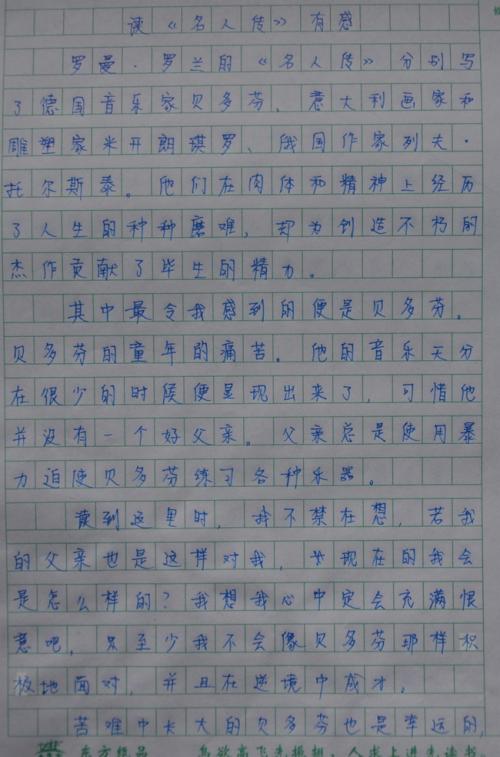 读《名人传》有感
罗曼·罗兰的《名人传》分别写
了德国音乐家贝多芬、意大利画家和
雕塑家米开朗琪罗、俄国作家列夫·
托尔斯泰。他们在肉体和精神上经历
了人生的种种磨难，却为创造不朽的
杰作贡献了毕生的精力。
其中最令我感到的便是贝多芬。
贝多芬的童年的痛苦。他的音乐天分
在很少的时候便显现出来了，可惜他
并没有一个好父亲。父亲总是使用暴
力迫使贝多芬练习各种乐器。
读到这里时，我不禁在想，若我
的父亲也是这样对我，现在的我会
是怎么样的？我想我心中定会充满恨
意吧，至少我不会像贝多芬那样积
极地面对，并且在逆境中成才。
苦难中长大的贝多芬也是幸运的，
东方精品 鸟欲高飞先振翅，人求上进先读书。